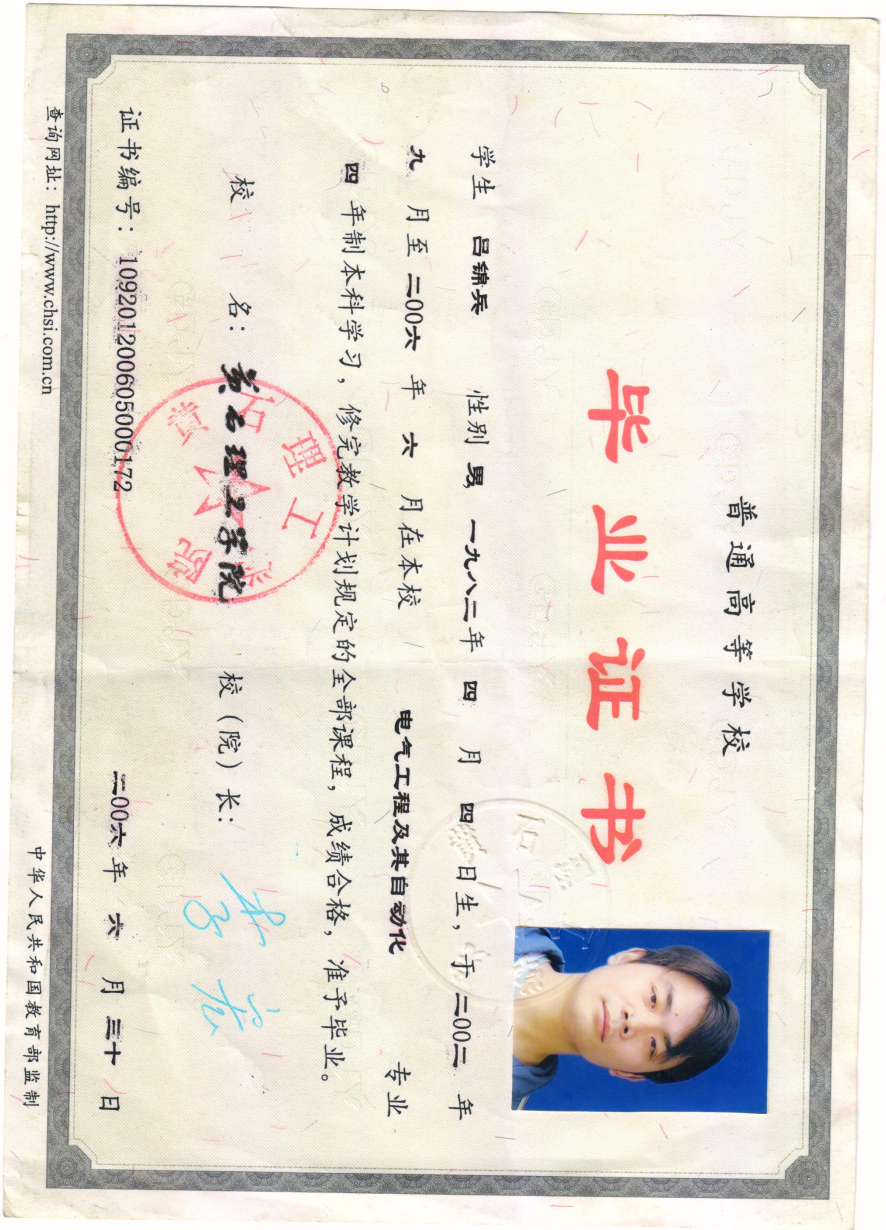 普通高等学校
毕业证书
学生 吕锦兵 性别 男 一九八二年 四 月 四 日生，于 二00二 年
九 月至 二00六 年 六 月在本校 电气工程及其自动化 专业
四 年制本科学习，修完教学计划规定的全部课程，成绩合格，准予毕业。
校 名：黄石理工学院 校（院）长：
证书编号：109201200605000172 二00六年 六 月 三十 日
查询网址：http://www.chsi.com.cn 中华人民共和国教育部监制